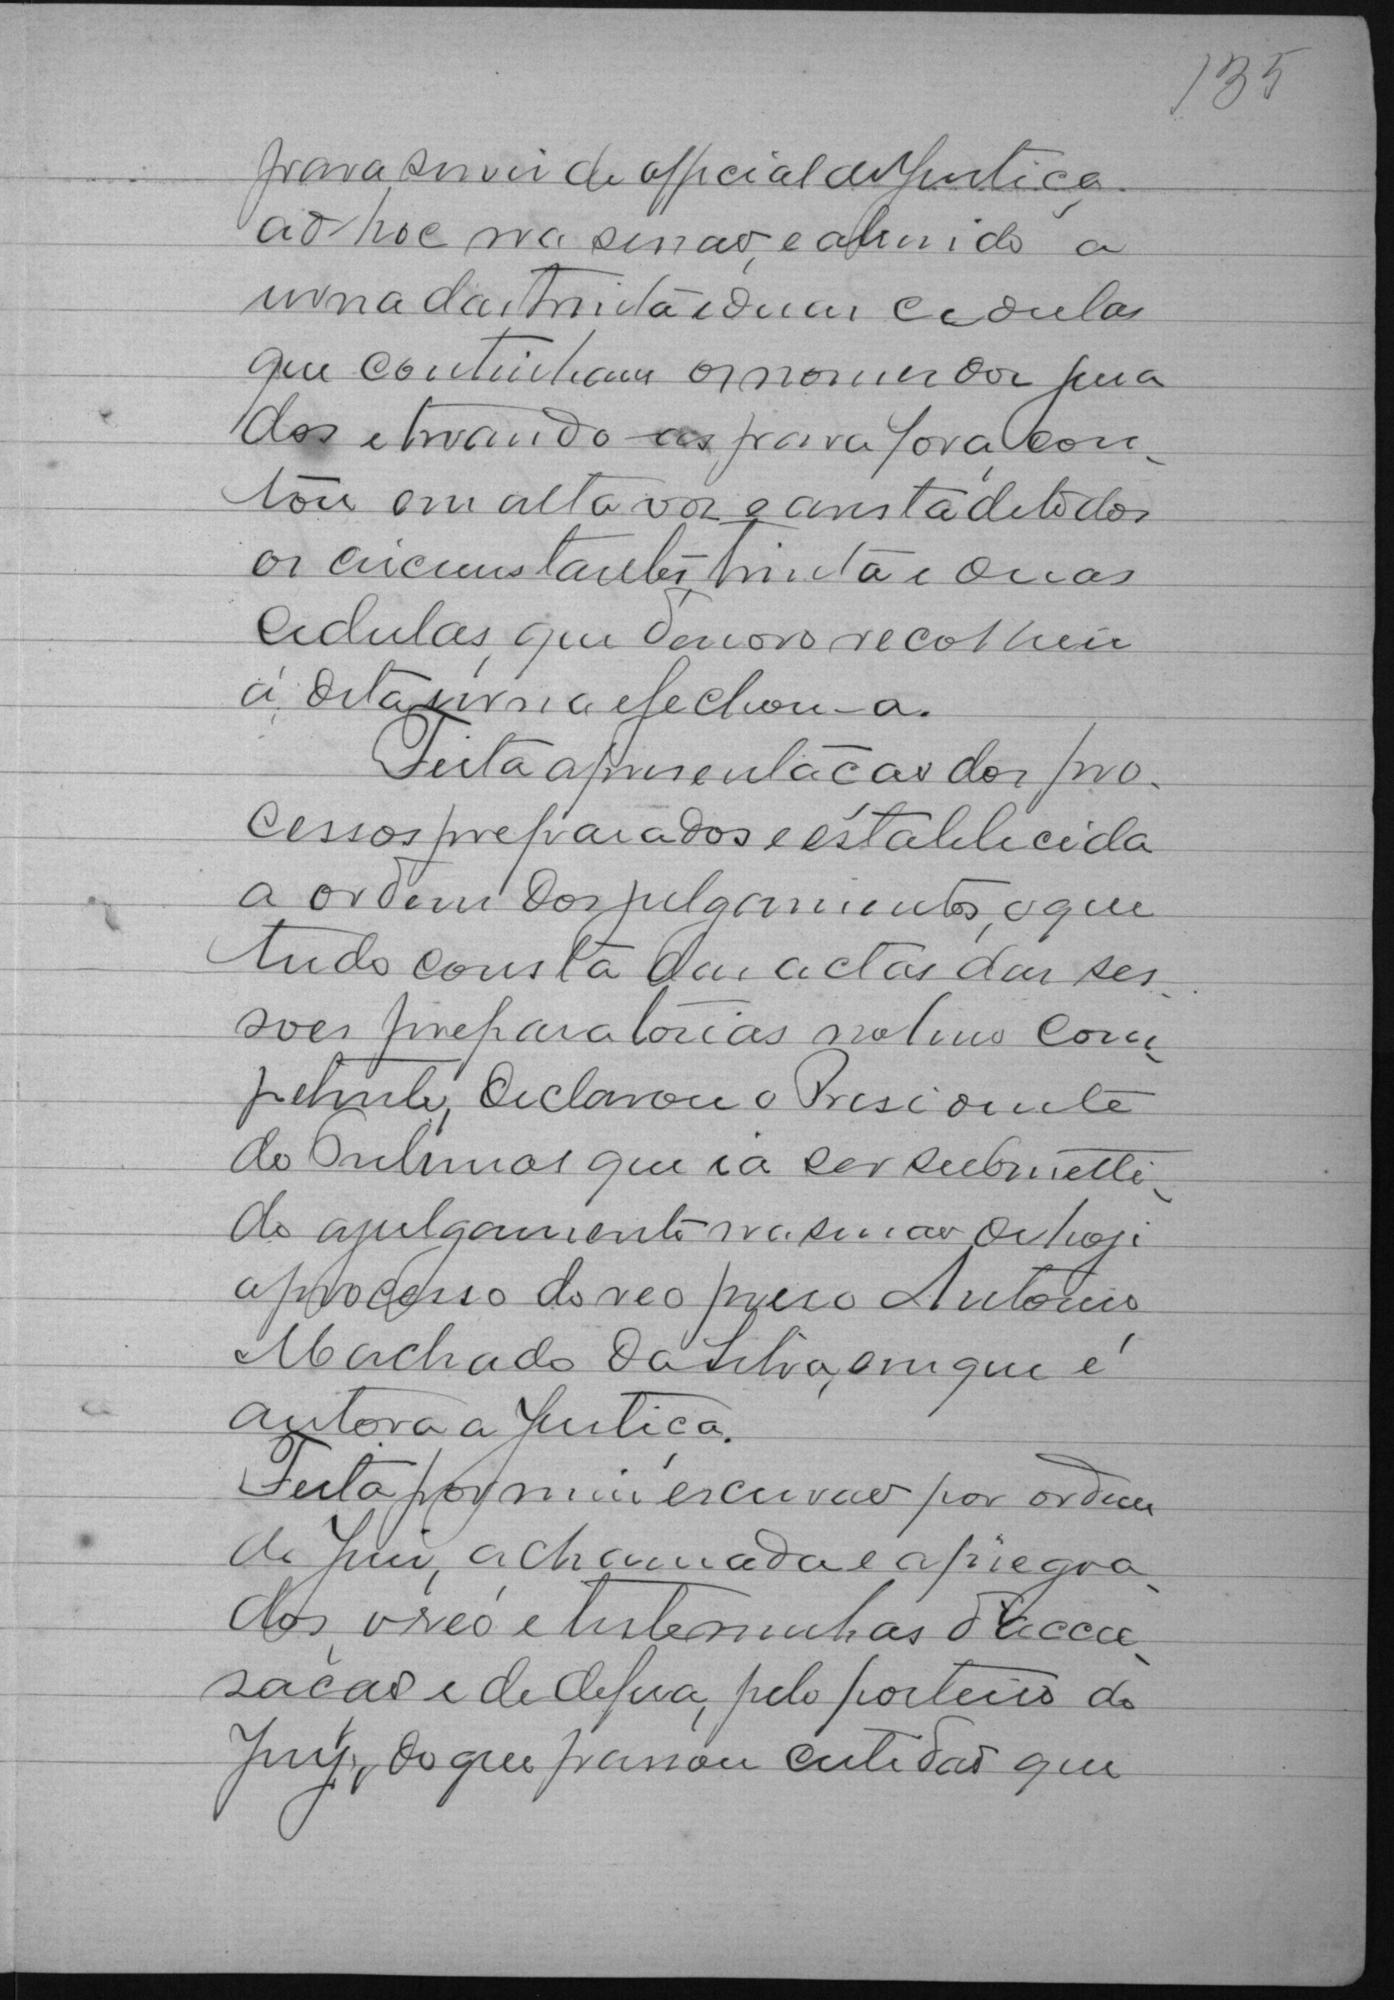 135
para servir de official de Justiça
ad-hoc na sessão, e abrindo a
urna das trinta e duas cedulas
que continham os nomes dos jura
dos e tirando-as para fora, con-
tou em alta voz e a vista de todos
os circumstantes, trinta e duas
cedulas, que denovo recolheu
á dita urna e fechou-a.
Feita apresentação dos pro-
cessos preparados e establecida
a ordem dos julgamentos, o que
tudo consta das actas das ses-
sões preparatorias no livro com-
petente, declarou o Presidente
do Tribunal que ia ser submetti-
do a julgamento na sessão de hoje
o processo do reo preso Antonio
Machado da Silva, em que é
autora a Justiça.
Feita por mim escrivão por ordem
do Juiz, a chamada e apregoa-
dos, o réo e testemunhas d'accu-
sação e de defesa, pelo porteiro do
Jury, do que passou certidão que